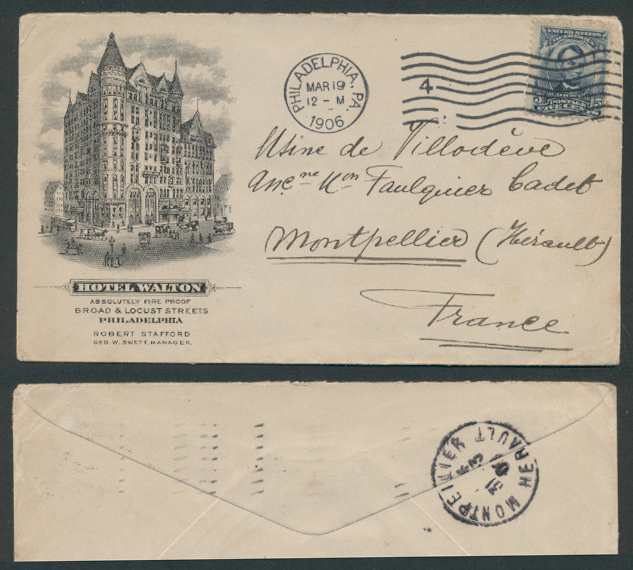 PHILADELPHIA, PA.
MAR 19
12-M
1906
4
UNITED STATES
Usine de Villodève
Anc.ne Mon Faulquier Cadet
Montpellier (Hérault)
France
HOTEL WALTON
ABSOLUTELY FIRE PROOF
BROAD & LOCUST STREETS
PHILADELPHIA
ROBERT STAFFORD
GEO. W. SWETT, MANAGER.
MONTPELLIER
HERAULT
31